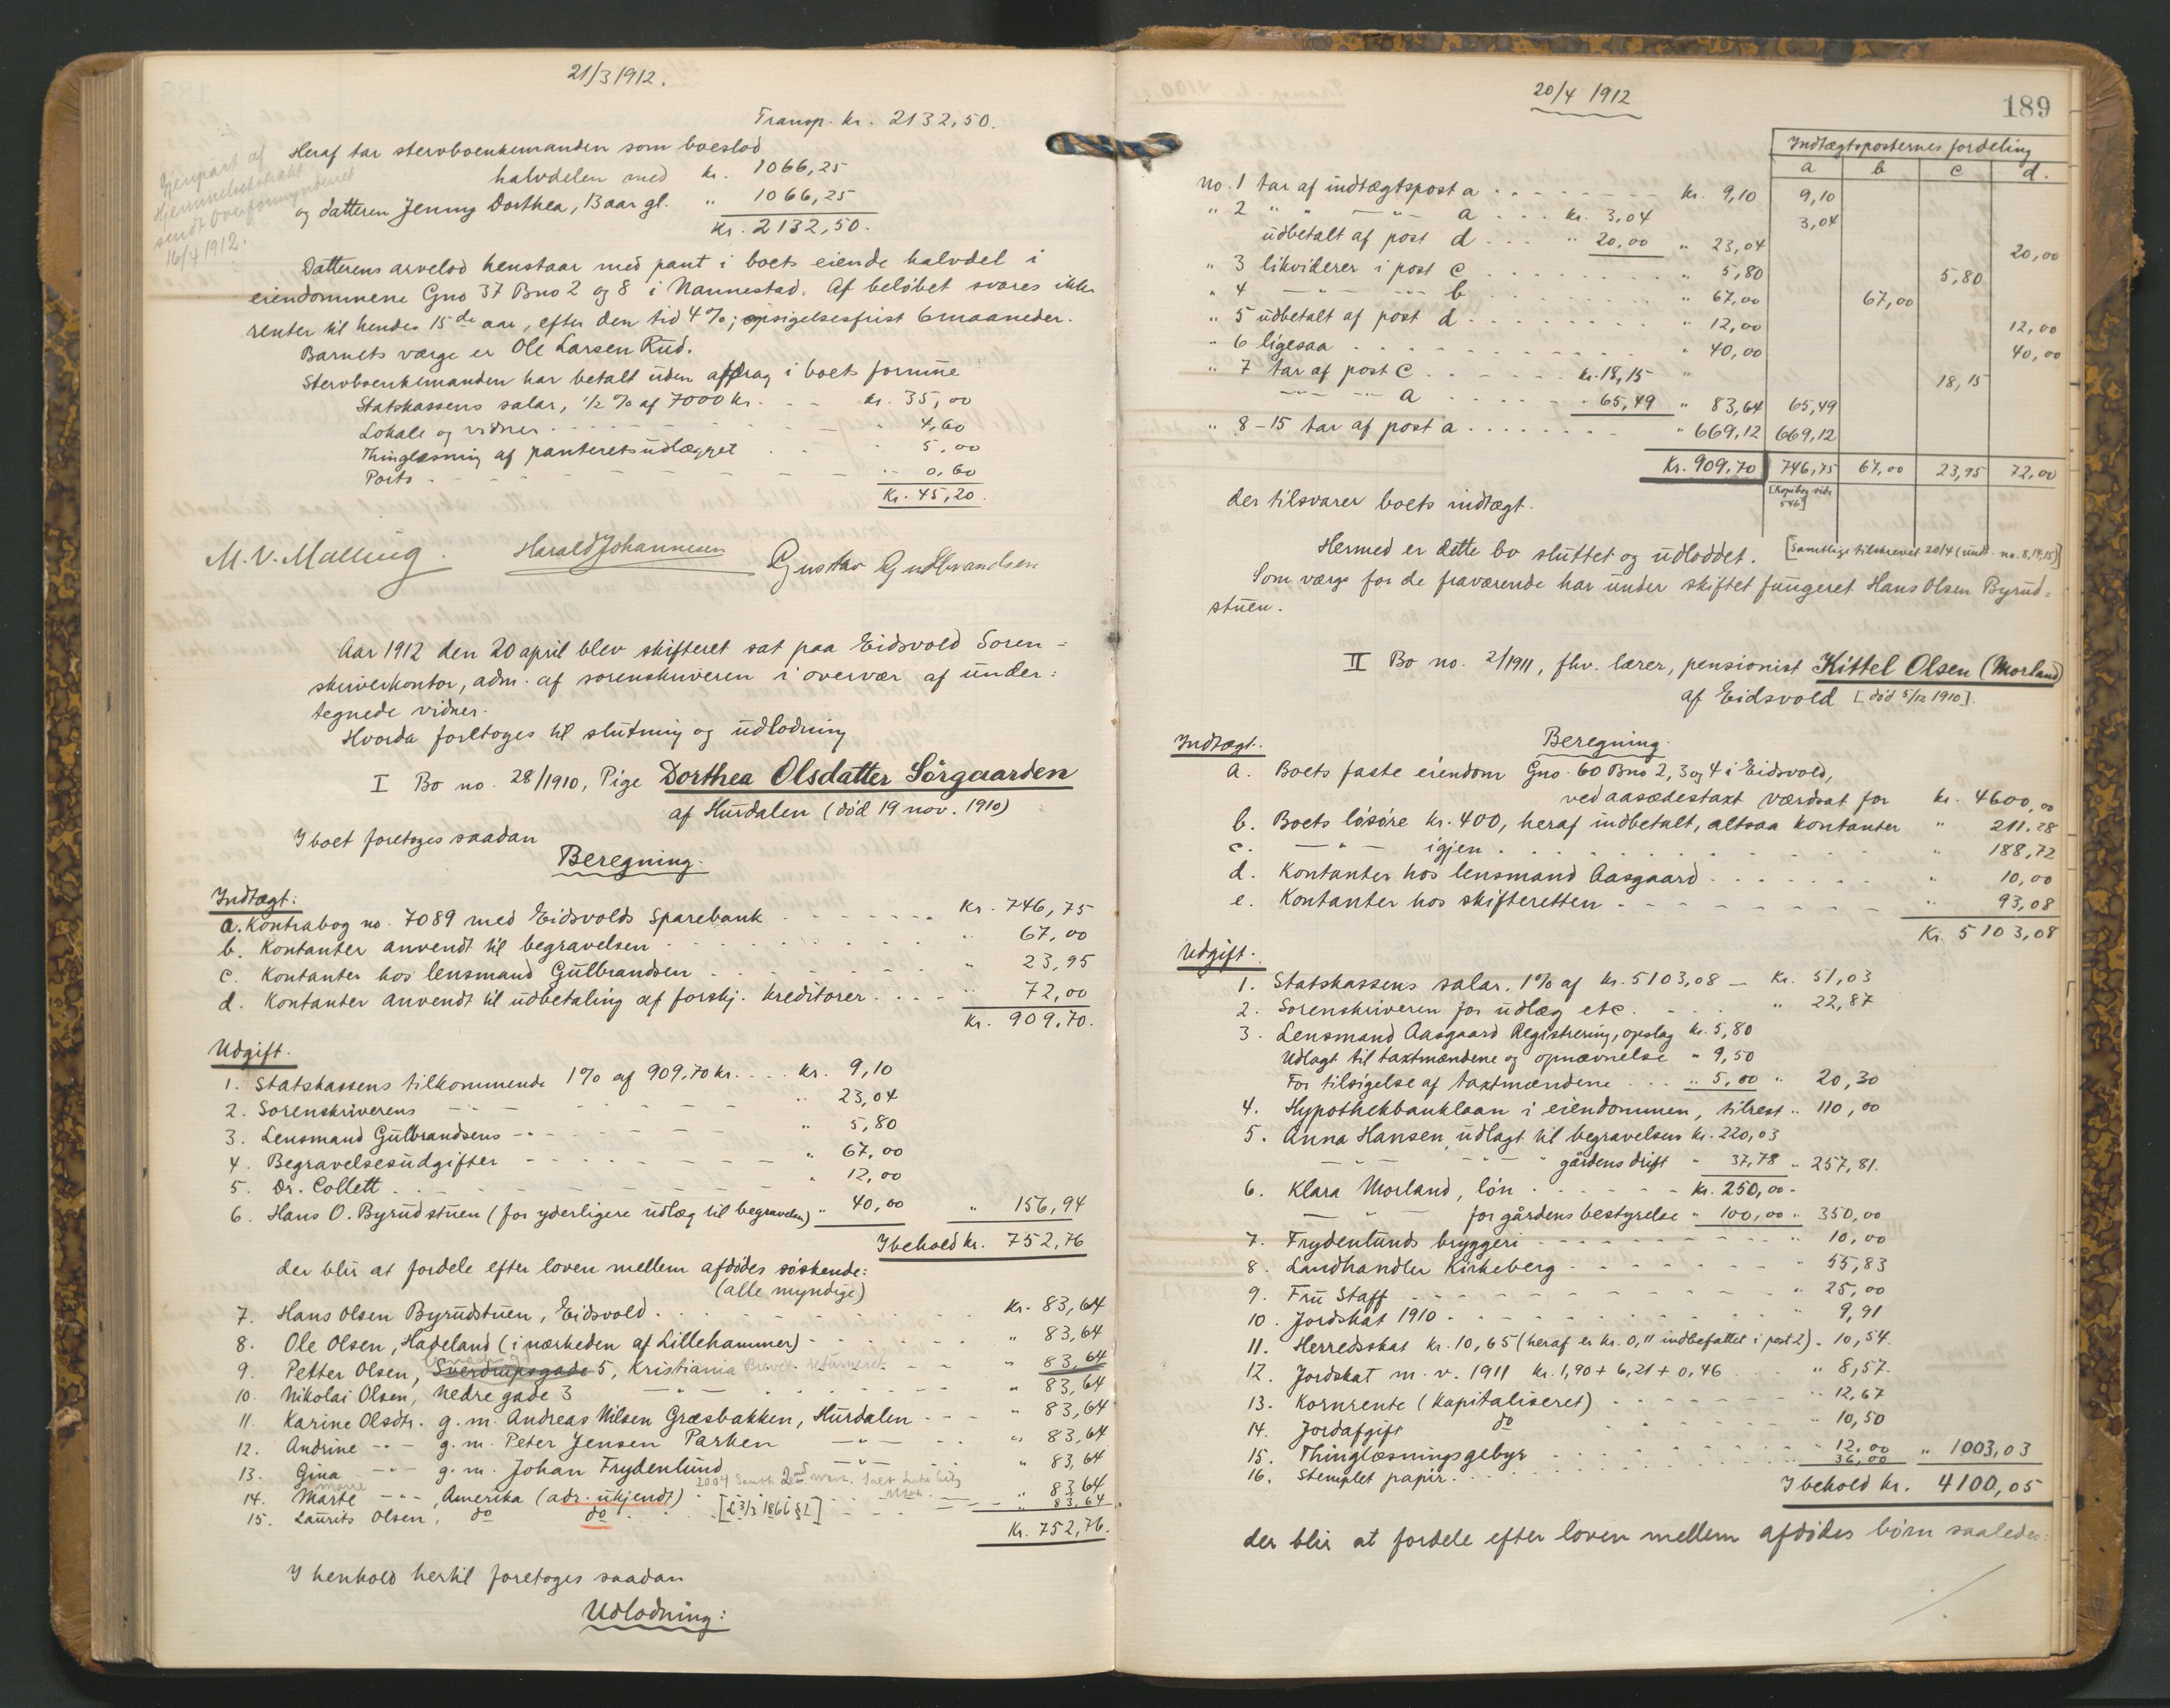 21/3 1912.
Transp. kr. 2132,50.
Gjenpart af
Hjemmelsekstrakt
sendt Overformynderiet
16/4 1912.
Heraf tar stervboenkemanden som boeslod
halvdelen med kr. 1066,25
og datteren Jenny Dorthea, 13 aar gl. " 1066,25
Kr. 2132,50.
Datterens arvelod henstaar med pant i boets eiende halvdel i
eiendommene Gno 37 Bno 2 og 8 i Nannestad. Af beløbet svares ikke
renter til hendes 15de aar, efter den tid 4%; opsigelsesfrist 6 maaneder.
Barnets værge er Ole Larsen Rud.
Stervboenkemanden har betalt uden afdrag i boets formue
Statskassens salar, 1/2 % af 7000 kr. - - kr. 35,00
Lokale og vidner - - - " 4,60
Thinglæsning af panteretsudlægget . . " 5,00
Porto - - - " 0,60
Kr. 45,20.
M. V. Malling. Harald Johannesen Gustav Gudbrandsen
Aar 1912 den 20 april blev skifteret sat paa Eidsvold Soren=
skriverkontor, adm. af sorenskriveren i overvær af under:
tegnede vidner.
Hvorda foretoges til slutning og udlodning
I Bo no. 28/1910, Pige Dorthea Olsdatter Sørgaarden
af Hurdalen (død 19 nov. 1910)
I boet foretoges saadan
Beregning.
Indtægt:
a. Kontrabog no. 7089 med Eidsvolds Sparebank . . . Kr. 746,75
b. Kontanter anvendt til begravelsen . . . " 67,00
c. Kontanter hos lensmand Gulbrandsen . . . " 23,95
d. Kontanter anvendt til udbetaling af forskj. kreditorer . . . " 72,00
Kr. 909,70.
Udgift.
1. Statskassens tilkommende 1% af 909,70 kr. . . . kr. 9,10
2. Sorenskriverens - " - " 23,04
3. Lensmand Gulbrandsens - " - " 5,80
4. Begravelsesudgifter - - - " 67,00
5. Dr. Collett . - - - " 12,00
6. Hans O. Byrudstuen (for yderligere udlæg til begravelsen) " 40,00 " 156,94
I behold kr. 752,76
der blir at fordele efter loven mellem afdødes søskende:
(alle myndige)
7. Hans Olsen Byrudstuen, Eidsvold . . . Kr. 83,64
8. Ole Olsen, Hadeland (i nærheden af Lillehammer) - . . " 83,64
9. Petter Olsen, Sverdrupsgade 5, Kristiania Brevet returneret - - " 83,64
10. Nikolai Olsen, Nedre gade 3 - " - . . . " 83,64
11. Karine Olsdtr. g. m. Andreas Nilsen Græsbakken, Hurdalen - - - " 83,64
12. Andrine - " - g. m. Peter Jensen Parken - " - . . " 83,64
13. Gina - " - g. m. Johan Frydenlund - " - " 83,64
2004 South 2nd West. Salt Lake City
14. Marte - " - , Amerika (adr. ukjendt) . . . " 83,64
15. Laurits Olsen, do do . . [L 3/3 1866 § 2] - - " 83,64
Kr. 752,76.
I henhold hertil foretoges saadan
Udlodning:
20/4 1912
189
Indtægtsposternes fordeling
a b c d.
no. 1 tar af indtægtspost a . . . kr. 9,10 9,10
" 2 " " - " - a . . . kr. 3,04 3,04
udbetalt af post d . . . " 20,00 " 23,04 20,00
" 3 likviderer i post c . . . " 5,80 5,80
" 4 - " - - " - b . . . " 67,00 67,00
" 5 udbetalt af post d . . . " 12,00 12,00
" 6 ligesaa . . . " 40,00 40,00
" 7 tar af post c . . . kr. 18,15 " 18,15
- " - - " - a . . . " 65,49 " 83,64 65,49
" 8-15 tar af post a . . . " 669,12 669,12
Kr. 909,70 746,75 67,00 23,95 72,00
[Kopibog side
546]
der tilsvarer boets indtægt.
Hermed er dette bo sluttet og udloddet. [Samtlige tilskrevet 20/4 (undt. no. 8, 14, 15)]
Som værge for de fraværende har under skiftet fungeret Hans Olsen Byrud=
stuen.
II Bo no. 2/1911, fhv. lærer, pensionist Kittel Olsen (Morland)
af Eidsvold [død 5/12 1910].
Beregning.
Indtægt.
a. Boets faste eiendom Gno. 60 Bno 2, 3 og 4 i Eidsvold,
ved aasædestaxt værdsat for kr. 4600,00
b. Boets løsøre kr. 400, heraf indbetalt, altsaa kontanter " 211,28
c. - " - igjen . . . " 188,72
d. Kontanter hos lensmand Aasgaard . . . " 10,00
e. Kontanter hos skifteretten - - - " 93,08
Kr. 5103,08
Udgift.
1. Statskassens salar. 1% af kr. 5103,08 - Kr. 51,03
2. Sorenskriveren for udlæg etc. . . . " 22,87
3. Lensmand Aasgaard Registrering, opslag kr. 5,80
Udlagt til taxtmændene og opnævnelse " 9,50
For tilsigelse af taxtmændene . . . " 5,00 " 20,30
4. Hypothekbanklaan i eiendommen, tilrest " 110,00
5. Anna Hansen, udlagt til begravelsen kr. 220,03
- " - - " - " gårdens drift " 37,78 " 257,81.
6. Klara Morland, løn . . . kr. 250,00 -
- " - for gårdens bestyrelse " 100,00 " 350,00
7. Frydenlunds bryggeri - - - " 10,00
8. Landhandler Kirkeberg - - - " 55,83
9. Fru Staff - - - " 25,00
10. Jordskat 1910 - . . . " 9,91
11. Herredsskat kr. 10,65 (heraf er kr. 0,11 indbefattet i post 2) - 10,54.
12. Jordskat m. v. 1911 kr. 1,90 + 6,21 + 0,46 " 8,57.
13. Kornrente (kapitaliseret) . . . " 12,67
14. Jordafgift do . . . " 10,50
15. Thinglæsningsgebyr . . . " 12,00 " 1003,03
16. Stemplet papir . . . 36,00
I behold kr. 4100,05
der blir at fordele efter loven mellem afdødes børn saaledes: